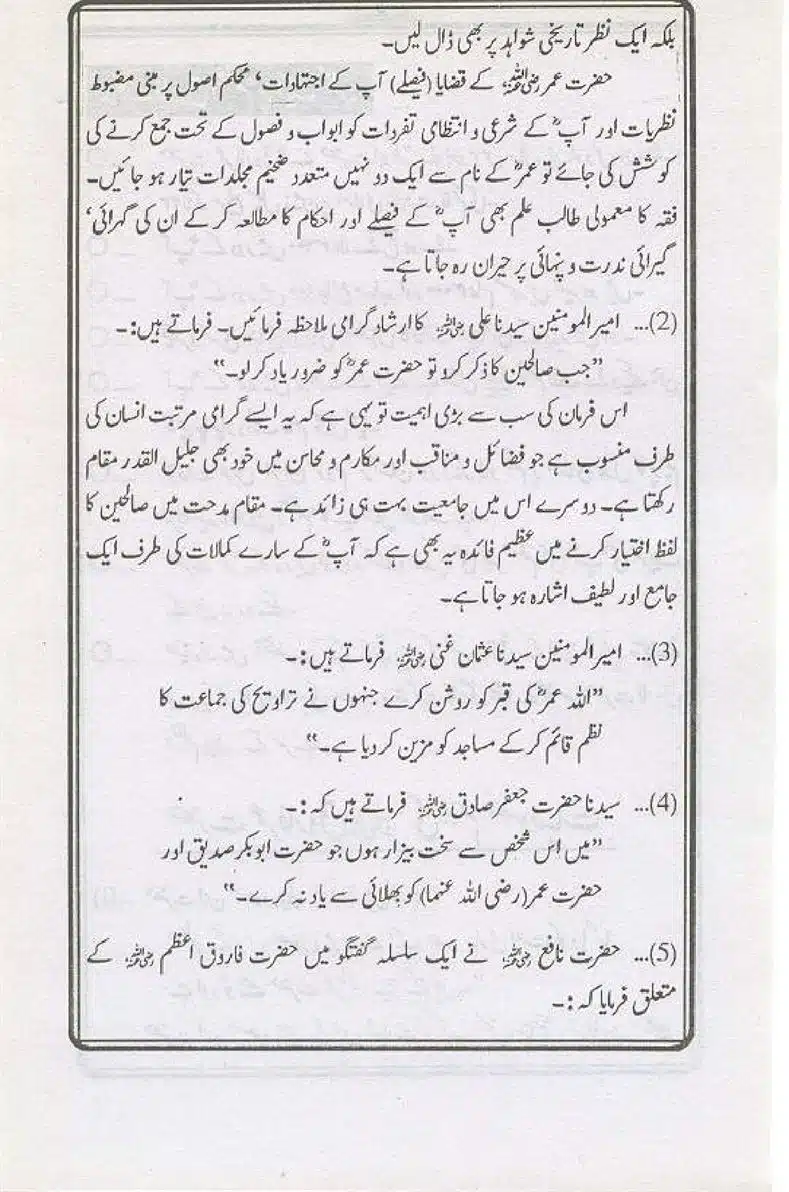 بلکہ ایک نظر تاریخی شواہد پر بھی ڈال لیں۔
حضرت عمر رضی اللہ عنہ کے قضایا (فیصلے) آپ کے اجتہادات‘ محکم اصول پر مبنی مضبوط
نظریات اور آپؓ کے شرعی و انتظامی تفردات کو ابواب و فصول کے تحت جمع کرنے کی
کوشش کی جائے تو عمرؓ کے نام سے ایک دو نہیں متعدد ضخیم مجلدات تیار ہو جائیں۔
فقہ کا معمولی طالب علم بھی آپؓ کے فیصلے اور احکام کا مطالعہ کر کے ان کی گہرائی‘
گیرائی ندرت و پنہائی پر حیران رہ جاتا ہے۔
(2)... امیر المومنین سیدنا علی رضی اللہ عنہ کا ارشاد گرامی ملاحظہ فرمائیں۔ فرماتے ہیں:۔
”جب صالحین کا ذکر کرو تو حضرت عمرؓ کو ضرور یاد کر لو۔“
اس فرمان کی سب سے بڑی اہمیت تو یہی ہے کہ یہ ایسے گرامی مرتبت انسان کی
طرف منسوب ہے جو فضائل و مناقب اور مکارم و محاسن میں خود بھی جلیل القدر مقام
رکھتا ہے۔ دوسرے اس میں جامعیت بہت ہی زائد ہے۔ مقام مدحت میں صالحین کا
لفظ اختیار کرنے میں عظیم فائدہ یہ بھی ہے کہ آپؓ کے سارے کمالات کی طرف ایک
جامع اور لطیف اشارہ ہو جاتا ہے۔
(3)... امیر المومنین سیدنا عثمان غنی رضی اللہ عنہ فرماتے ہیں:۔
”اللہ عمرؓ کی قبر کو روشن کرے جنہوں نے تراویح کی جماعت کا
نظم قائم کر کے مساجد کو مزین کر دیا ہے۔“
(4)... سیدنا حضرت جعفر صادق رضی اللہ عنہ فرماتے ہیں کہ:۔
”میں اس شخص سے سخت بیزار ہوں جو حضرت ابوبکر صدیق اور
حضرت عمر (رضی اللہ عنہما) کو بھلائی سے یاد نہ کرے۔“
(5)... حضرت نافع رضی اللہ عنہ نے ایک سلسلہ گفتگو میں حضرت فاروق اعظم رضی اللہ عنہ کے
متعلق فرمایا کہ:۔